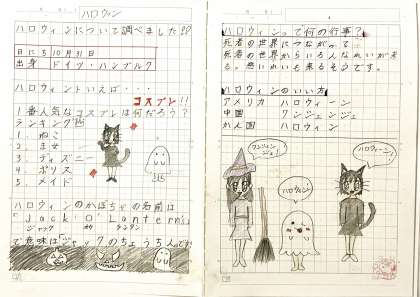 ハロウィン
ハロウィンについて調べました!!
日にち10月31日
出身 ドイツ・ハンブルク
ハロウィンといえば・・・
コスプレ!!
1番人気なコスプレは何だろう?
ランキング
1. ねこ
2. ま女
3. ディズニー
4. ポリス
5. メイド
ハロウィンのかぼちゃの名前は
「Jack O' Lantern's」
ジャック オウ ランタン
で意味は「ジャックのちょうちん」です
ハロウィンって何の行事?
死者の世界につながって
死者の世界からいろんなれいが来
る。悪いれいも来るそうです。
ハロウィンのいい方
アメリカ ハロウィーン
中国 ワンシェンジェ
かん国 ハロウィン
ワンシェンジェ!
ハロウィン
ハロウィーン!